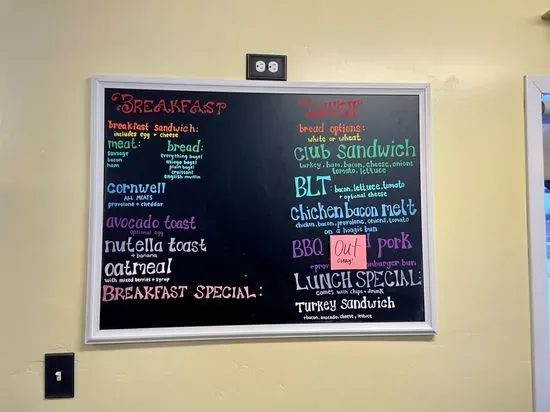 BREAKFAST
breakfast sandwich:
includes egg + cheese
meat:
sausage
bacon
ham
bread:
everything bagel
asiago bagel
plain bagel
croissant
english muffin
cornwell
ALL MEATS
provolone + cheddar
avocado toast
optional egg
nutella toast
+ banana
oatmeal
with mixed berries + syrup
BREAKFAST SPECIAL:
"LUNCH"
bread options:
white or wheat
club sandwich
turkey, ham, bacon, cheese, onions
tomato, lettuce
BLT: bacon, lettuce, tomato
+ optional cheese
chicken bacon melt
chicken, bacon, provolone, onions, tomato
on a hoagie bun
BBQ pork
out
LUNCH SPECIAL:
comes with chips + drink
Turkey sandwich
+bacon, avocado, cheese, lettuce